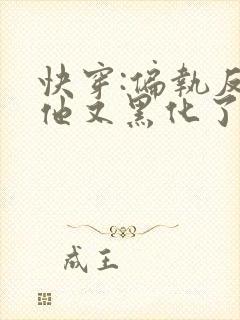 快穿:偏執反
他又黑化了
成王